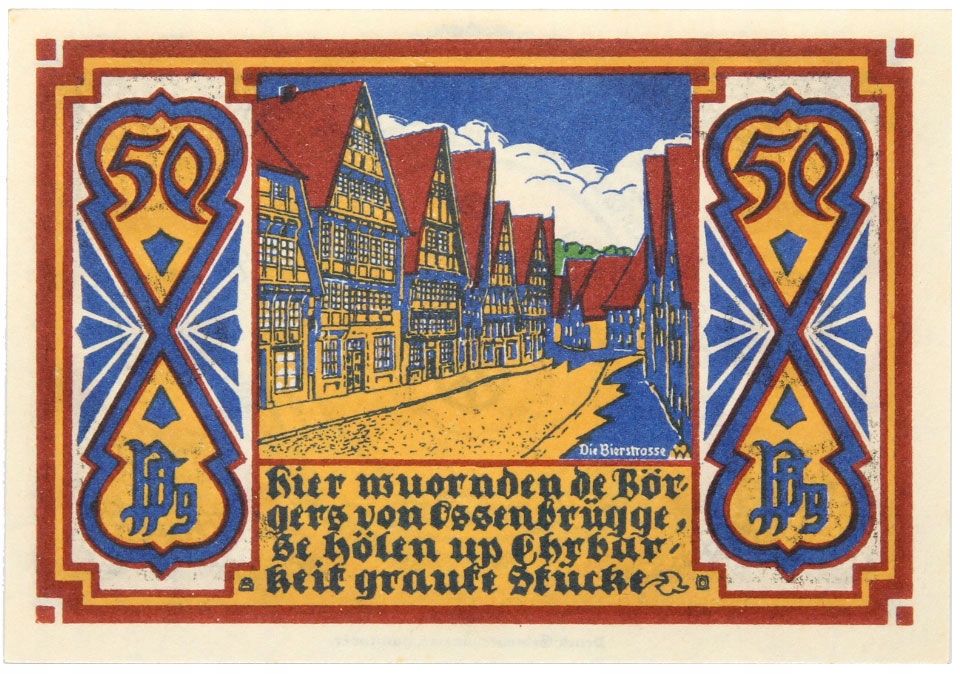 50
50
Die Bierstrasse W
Pfg
Pfg
Hier wuornden de Bör-
gers von Ossenbrügge,
se hölen up Ehrbar-
keit graute Stücke